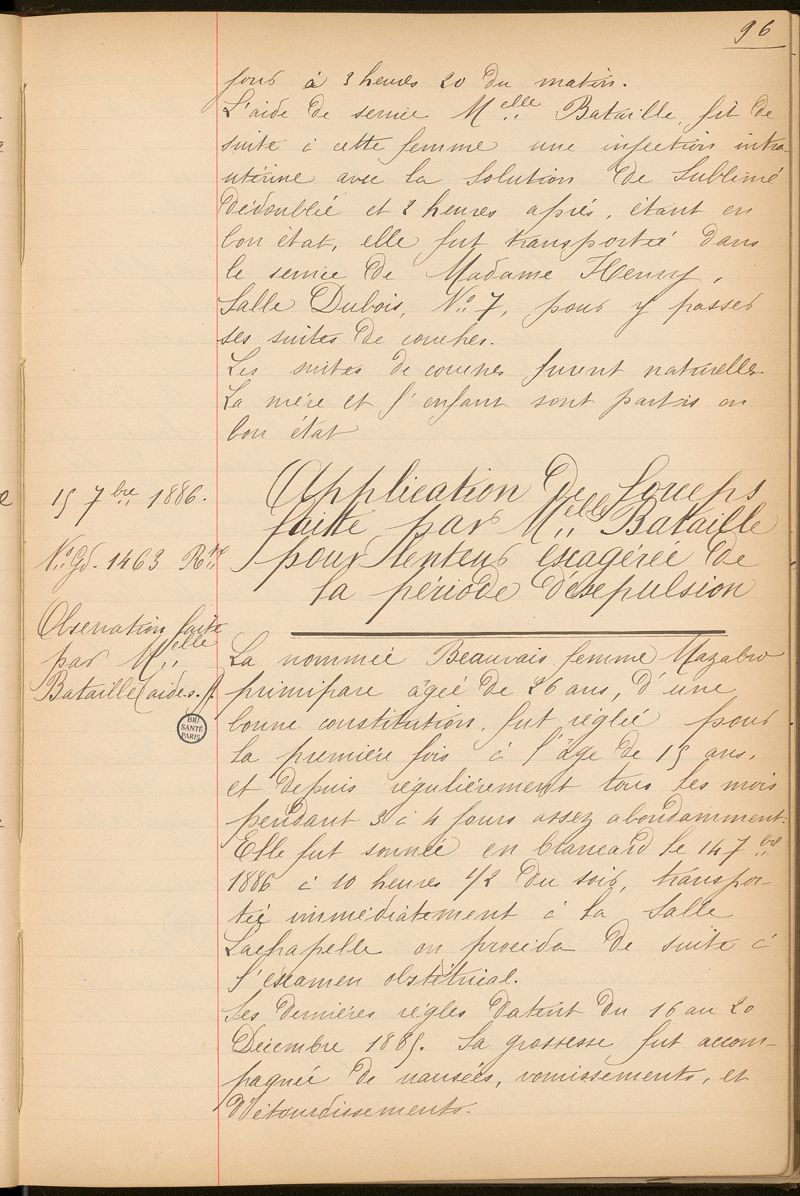 96
jour à 3 heures 20 du matin.
L'aide de service Melle Bataille, fit de
suite à cette femme une injection intra-
utérine avec la Solution de Sublimé
dédoublée et 2 heures après, étant en
bon état, elle fut transportée dans
le service de Madame Henry,
Salle Dubois, No 7, pour y passer
ses suites de couches.
Les suites de couches furent naturelles.
La mère et l'enfant sont partis en
bon état
15 7bre 1886.
No Gd. 1463 Rte
Observation faite
par Melle
Bataille (aide s. f.
BIU
SANTÉ
PARIS
Application de forceps
faite par Melle Bataille
pour lenteur exagérée de
la période d'expulsion
La nommée Beauvais femme Mazabro
primipare âgée de 26 ans, d'une
bonne constitution, fut réglée pour
la première fois à l'âge de 15 ans,
et depuis régulièrement tous les mois
pendant 3 à 4 jours assez abondamment.
Elle fut sonnée en brancard le 14 7bre
1886 à 10 heures 1/2 du soir, transpor-
tée immédiatement à la Salle
Lachapelle on procéda de suite à
l'examen obstétrical.
Ses dernières règles datent du 16 au 20
Décembre 1885. Sa grossesse fut accom-
pagnée de nausées, vomissements, et
d'étourdissements.